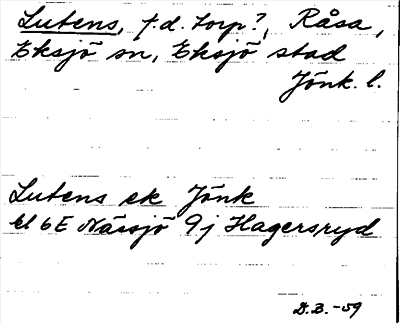 Lutens, f.d. torp?, Råsa,
Eksjö sn, Eksjö stad
Jönk. l.
Lutens ek Jönk
bl 6E Nässjö 9j Hagersryd
G.B. -59